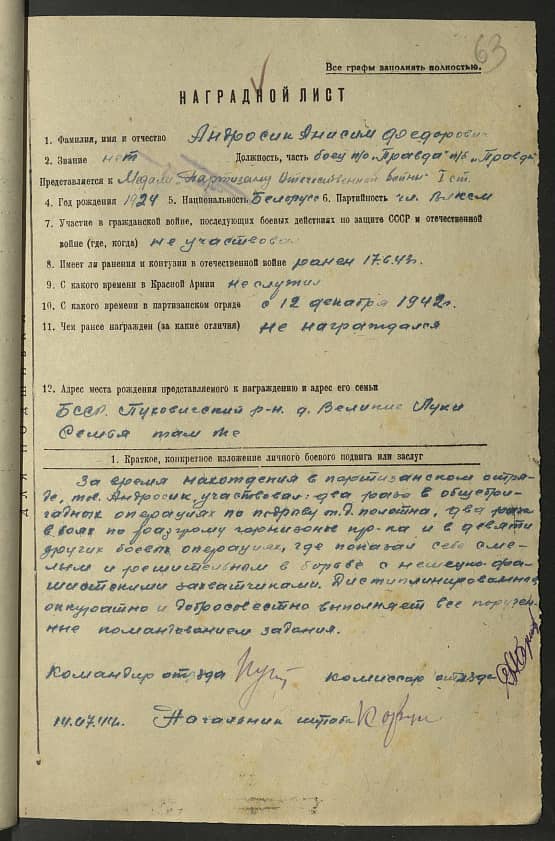 63
Все графы заполнять полностью.
НАГРАДНОЙ ЛИСТ
1. Фамилия, имя и отчество Андросик Анисим Федорович
2. Звание нет Должность, часть боец п/о "Правда" п/б "Правда"
Представляется к Медали "Партизану Отечественной Войны" I ст.
4. Год рождения 1924 5. Национальность Белорусс 6. Партийность чл. Влксм
7. Участие в гражданской войне, последующих боевых действиях по защите СССР и отечественной
войне (где, когда) не участвовал
8. Имеет ли ранения и контузии в отечественной войне ранен 17.6.43г.
9. С какого времени в Красной Армии не служил
10. С какого времени в партизанском отряде с 12 декабря 1942г.
11. Чем ранее награжден (за какие отличия) не награждался
12. Адрес места рождения представляемого к награждению и адрес его семьи
БССР. Пуховичский р-н. д. Великие Луки
Семья там же
1. Краткое, конкретное изложение личного боевого подвига или заслуг
За время нахождения в партизанском отря-
де, тов. Андросик, участвовал: два раза в общебри-
гадных операциях по подрыву ж.д. полотна, два раза
в боях по разгрому гарнизонов пр-ка и в девяти
других боевых операциях, где показал себя сме-
лым и решительным в борьбе с немецко-фа-
шистскими захватчиками. Дисциплинированный
аккуратно и добросовестно выполняет все поручен-
ные командованием задания.
Командир отряда комиссар отряда
14.07.44г. Начальник штаба